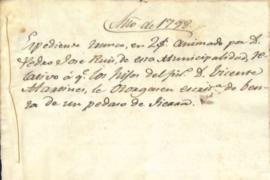 Año de 1798
Expediente nuevo, en 2 f. animado por D.
Pedro Jose Ruiz, de esta Municipalidad, re
lativo á q. los hijos del D. Vicente
Martines, le Otorguen escrit.ª de ven
ta de un pedaso de tierra